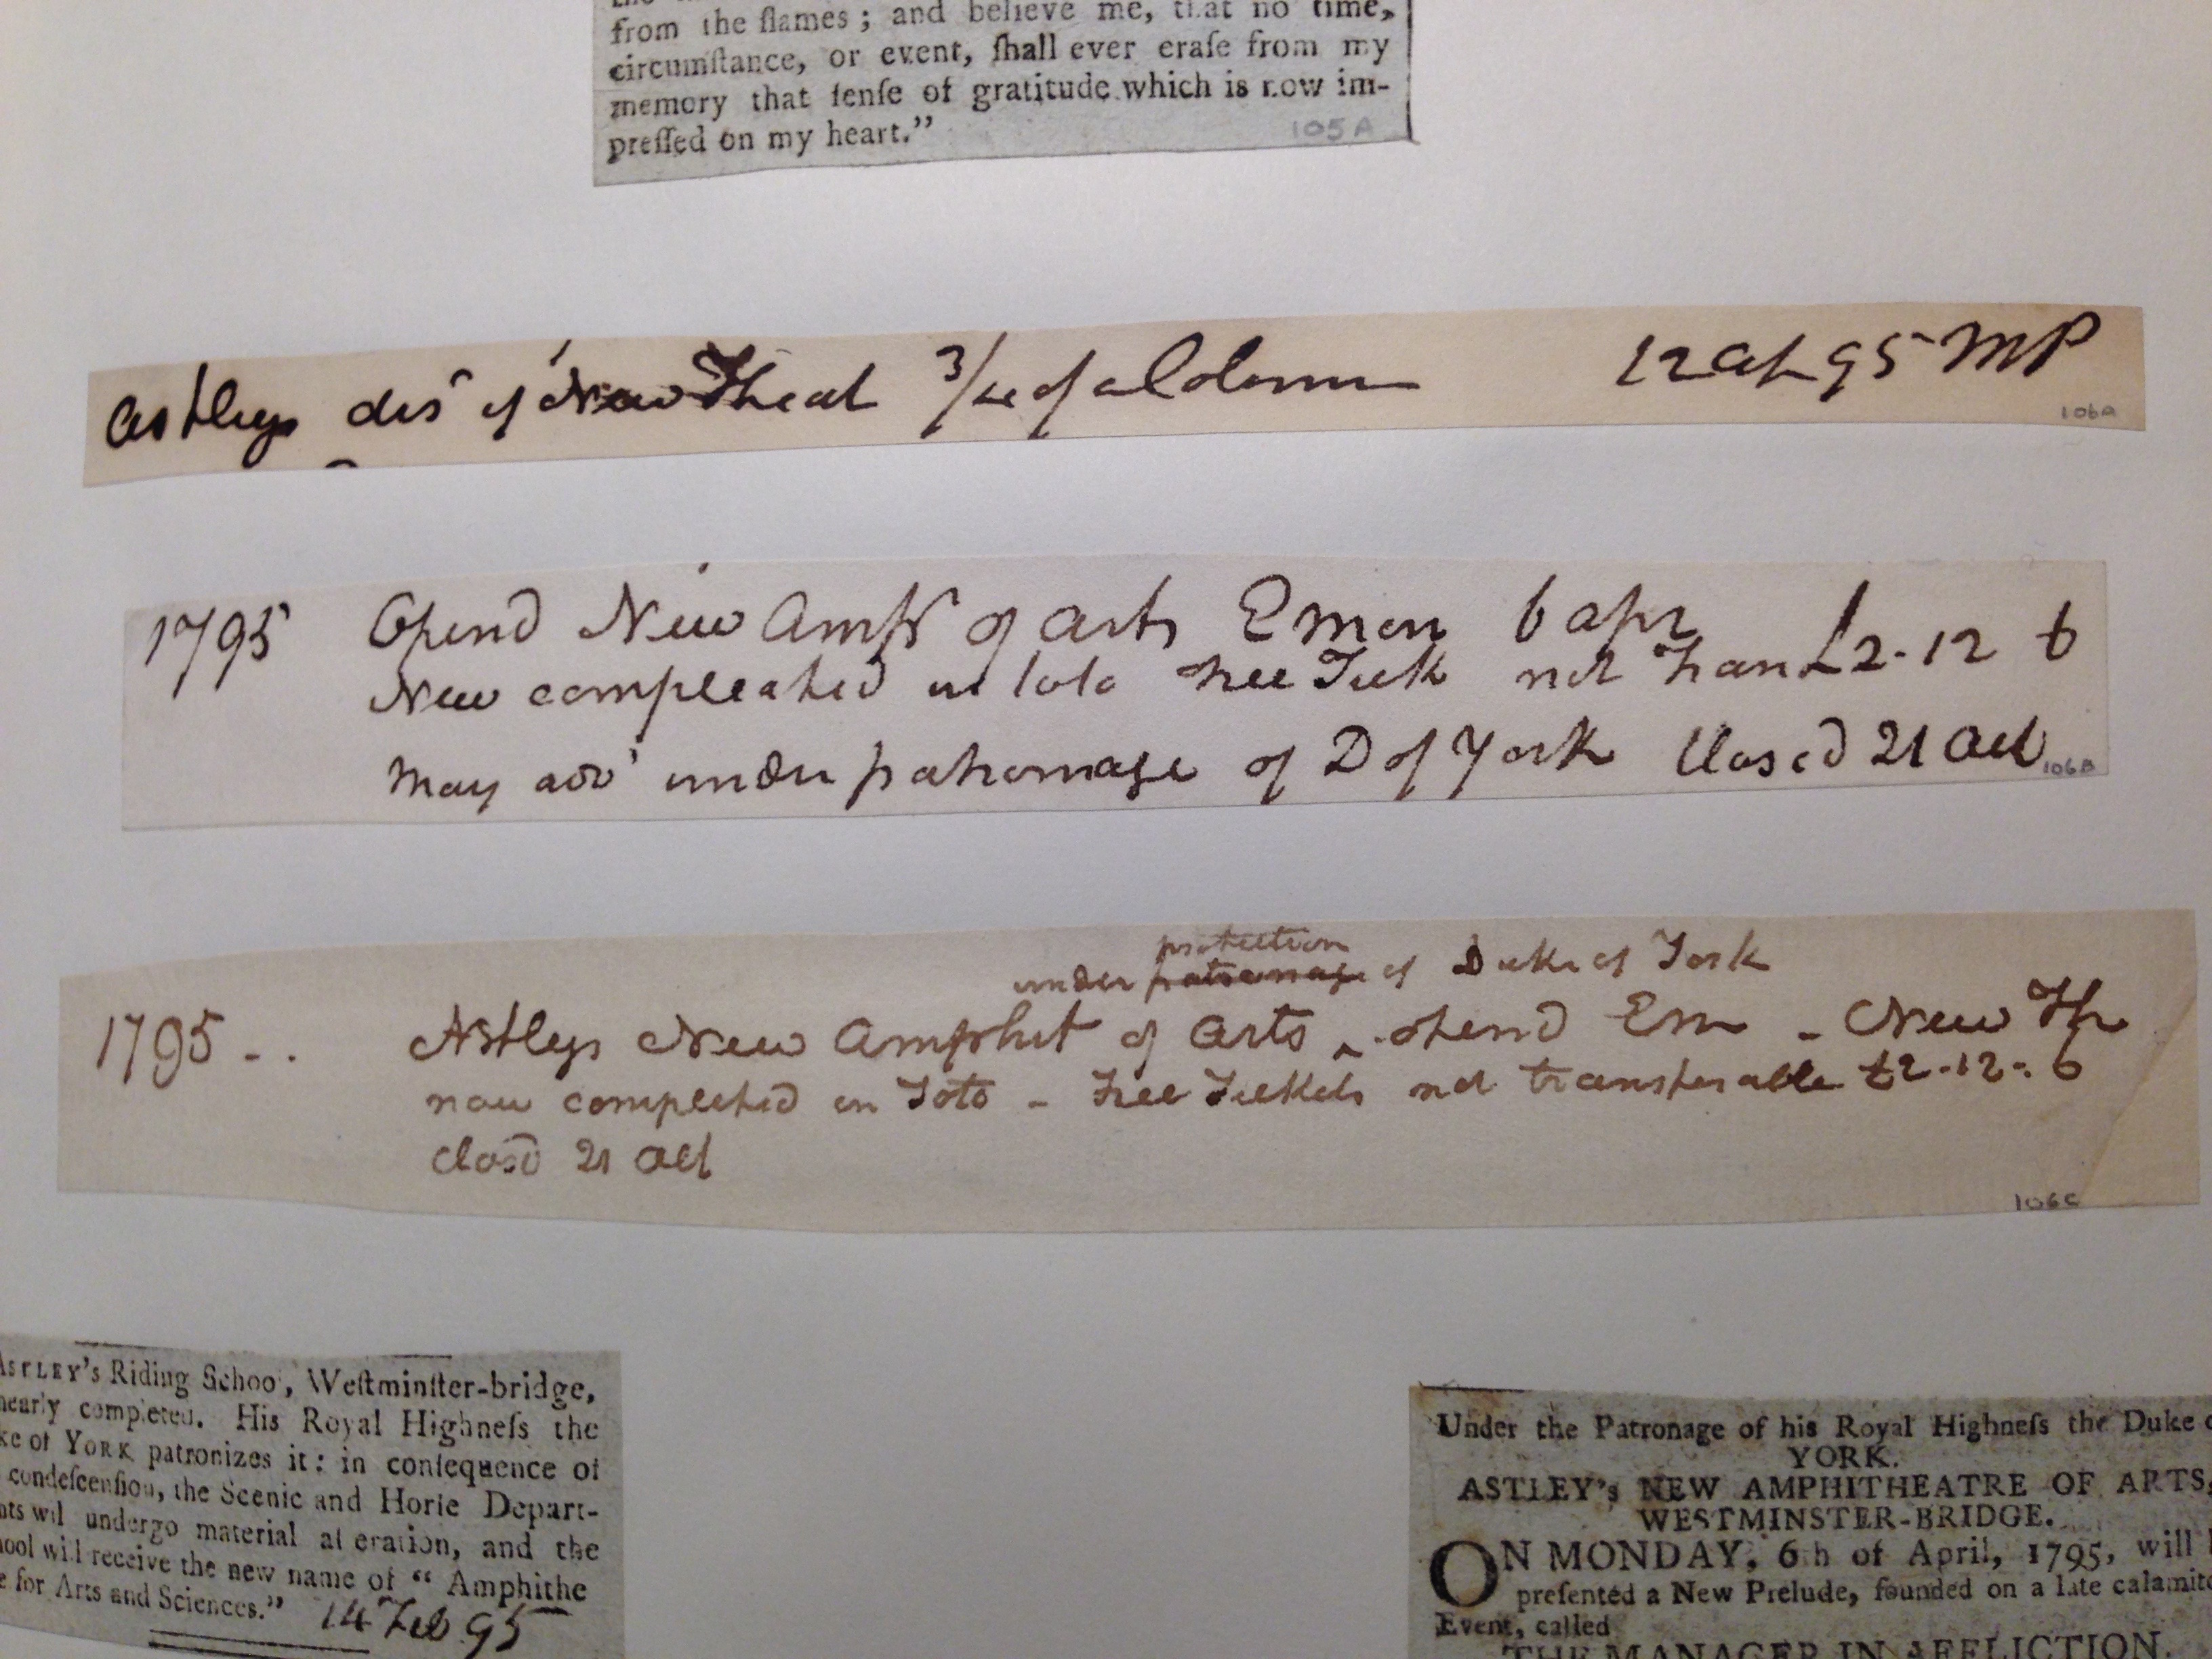 from the flames; and believe me, that no time,
circumſtance, or event, ſhall ever eraſe from my
memory that ſenſe of gratitude which is now im-
preſſed on my heart."
105A
Astleys des of New Theat 3/4 of a Colomn 12 Ap 95 MP
106A
1795 Opend New Amph of Arts E Mon 6 apr
New compleated in toto Free Tick not Tran £2-12 6
May adv under patronage of D of York Closed 21 Oct
106B
protection
under patronage of Duke of York
1795 - . . Astleys New Amphit of Arts ‸ opend Em - New Th
now completed in Toto - Free Tickets not transferable £2-12-.6
closd 21 Oct
106C
ASTLEY's Riding School, Weſtminſter-bridge,
nearly completed. His Royal Highneſs the
ke of YORK patronizes it: in conſequence of
condeſcenſion, the Scenic and Horſe Depart-
nts will undergo material alteration, and the
hool will receive the new name of "Amphithe
e for Arts and Sciences."
14 Feb 95
Under the Patronage of his Royal Highneſs the Duke o
YORK.
ASTLEY's NEW AMPHITHEATRE OF ARTS,
WESTMINSTER-BRIDGE.
ON MONDAY, 6th of April, 1795, will
preſented a New Prelude, founded on a late calamito
Event, called
THE MANAGER IN AFFLICTION.